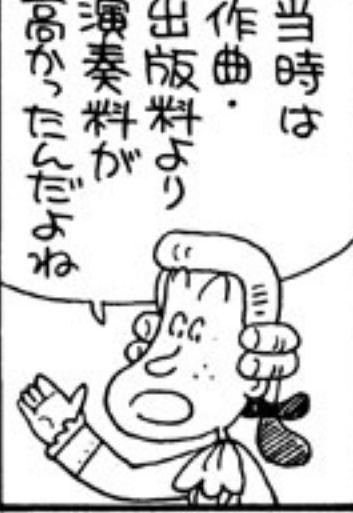 当時は
作曲・
出版料より
演奏料が
高かったんだよね